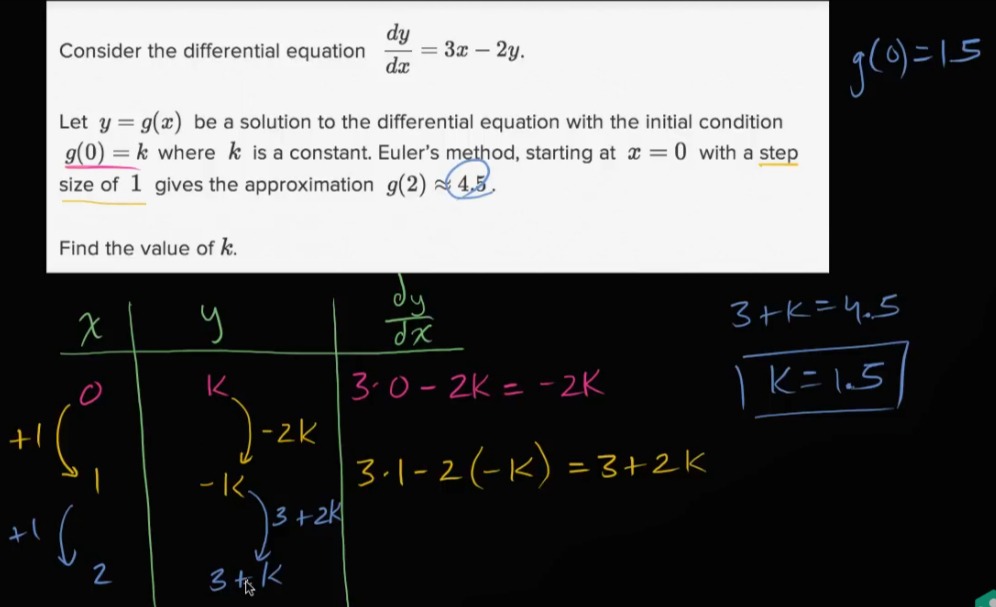 Consider the differential equation dy/dx = 3x − 2y.
g(0)=1.5
Let y = g(x) be a solution to the differential equation with the initial condition
g(0) = k where k is a constant. Euler's method, starting at x = 0 with a step
size of 1 gives the approximation g(2) ≈ 4.5.
Find the value of k.
x y dy/dx
3+K=4.5
0 K 3·0-2K=-2K
K=1.5
+1 -2K
1 -K 3·1-2(-K)=3+2K
+1 3+2K
2 3+K